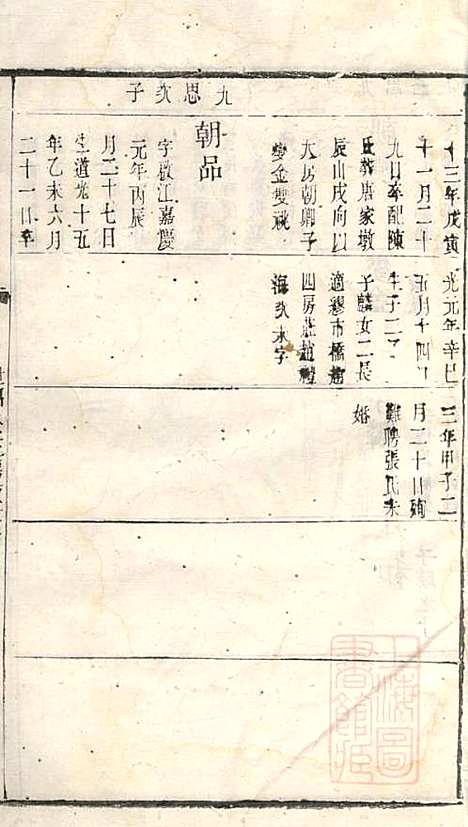 九思次子
十三年戊寅
十一月二十
九日卒配陳
氏葬唐家墩
辰山戌向以
大房朝卿子
燮金雙祧
朝品
字啟江嘉慶
元年丙辰
月二十七日
生道光十五
年乙未六月
二十一日卒
光元年辛巳
五月十四日
生子二
子麟女二長
適穆市橋趙
四房莊趙禮
海次未字
三年甲子二
月二十日殉
難聘張氏未
婚
上海圖
書館藏